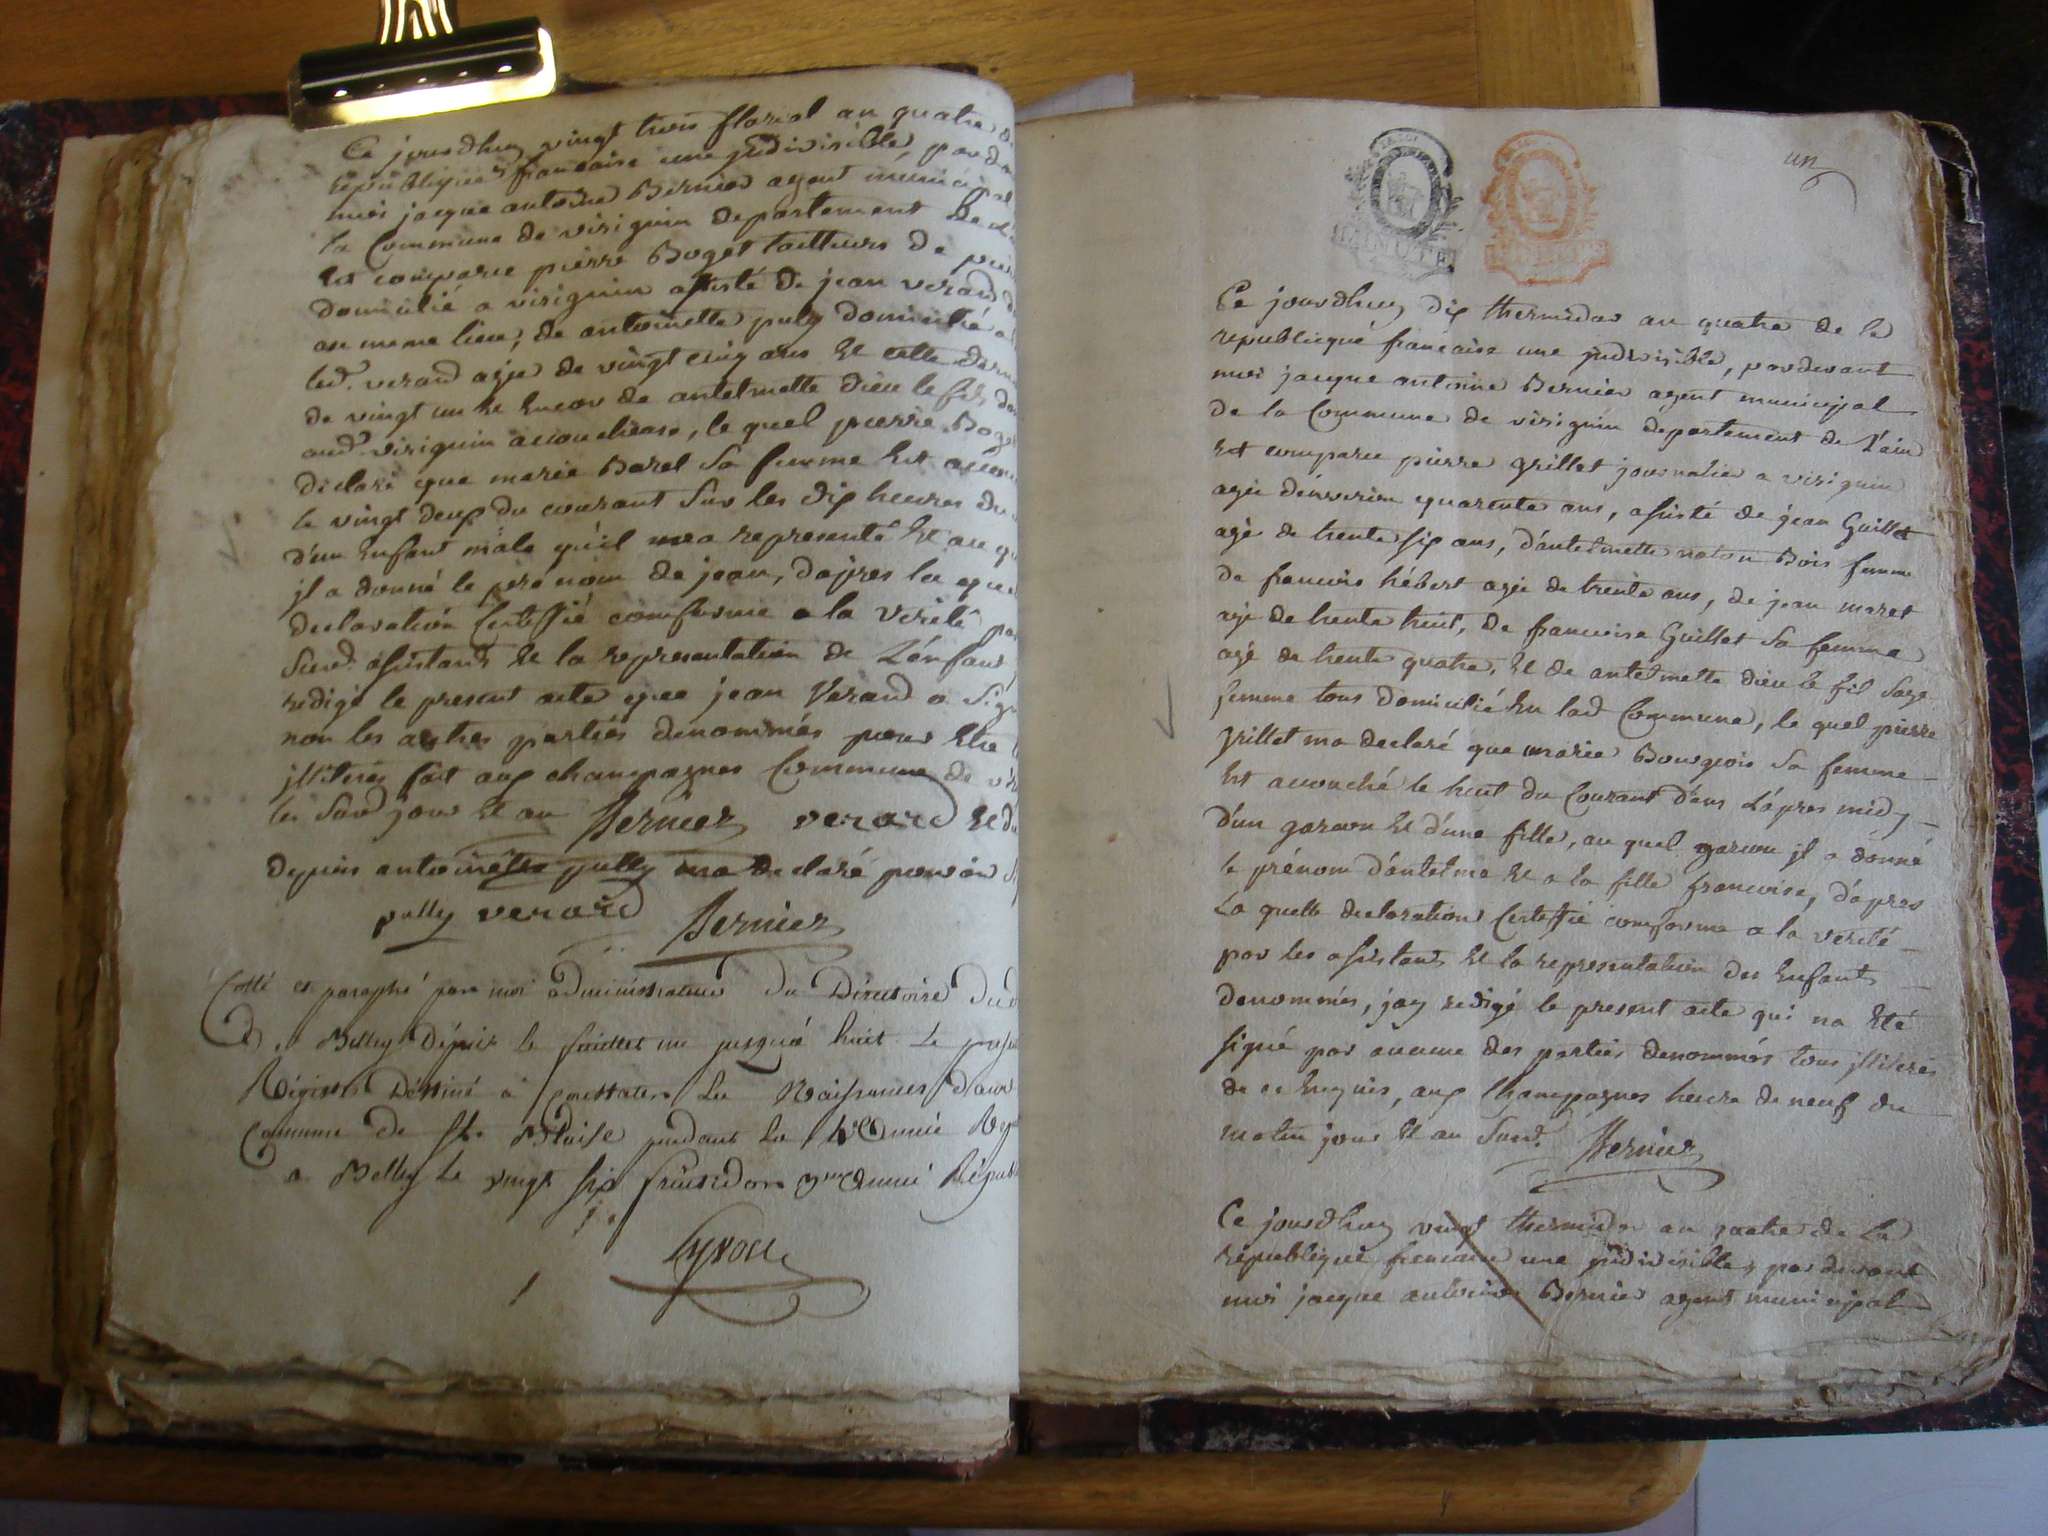 Ce jourdhuy vingt trois floreal an quatre de
republiques francaise une jndivisible, pard
moi jacque antoine Bernier agent municipal
la Commune de virignin departement de
Est comparu pierre Boget tailleurs de
domicilié a virignin assisté de jean verard
au meme lieu, de antoinette pully domicilié
led. verard agé de vingt cinq ans et cette
de vingt un et encor de antelmette dieu le fit
aud. virignin accoucheuse, le quel pierre Boget
declaré que marie Barel sa femme est
le vingt deux du courant sur les dix heures du
d'un Enfant male qu'il ma representé et au
jl a donné le pre nom de jean, dapres la
declaration Certiffié comforme a la verité
susd. assistants et la representation de L'énfant
redigé le present acte que jean Verard a
non les autres parties denommés pour Etre
jlliterés fait aux champagnes Commune de
les susd jour et an Bernier verard
depuis antoinette pully ma declaré pouvoir
pully verard Bernier
Cotté et paraphé par moi administrateur du Directoire du
de Belley dépuis le feuillet un jusquá huit le
Régistre Destiné à Constater les Naissances dans
Commune de St. Blaise pendant la 4e Année
a Belley le vingt six fructidor 3me Année
un
MINUTE
Ce jourdhuy dix thermidor an quatre de la
republicque francaise une jndivisible, pardevant
moi jacque antoine Bernier agent municipal
de la Commune de virignin departement de L'ain
est comparu pierre grillet journalier a virignin
agée dénviron quarente ans, assisté de jean Guillet
agé de trente six ans, d'antelmette Bois femme
de francois hébert agée de trente ans, de jean maret
agé de trente huit, de francoise Guillet sa femme
agé de trente quatre, et de antelmette dieu le fit sage
femme tous domicilié en lad Commune, le quel pierre
grillet ma declaré que marie Bourgeois sa femme
est accouché le huit du Courant d'ans L'apres midy
d'un garcon et d'une fille, au quel garcon jl a donné
le prénom d'antelme et a la fille francoise, d'apres
La quelle declaration Certiffié comforme a la verité
par les assistants et la representation des Enfants
denommés, jay redigé le present acte qui na Eté
signé par aucune des parties denommés tous jlliterés
de ce Enquis, aux Champagnes heure de neuf du
matin jour et an susd. Bernier
Ce jourdhuy vingt thermidor an quatre de La
république francaise une jndivisible, pardevant
moi jacque antoine Bernier agent municipal